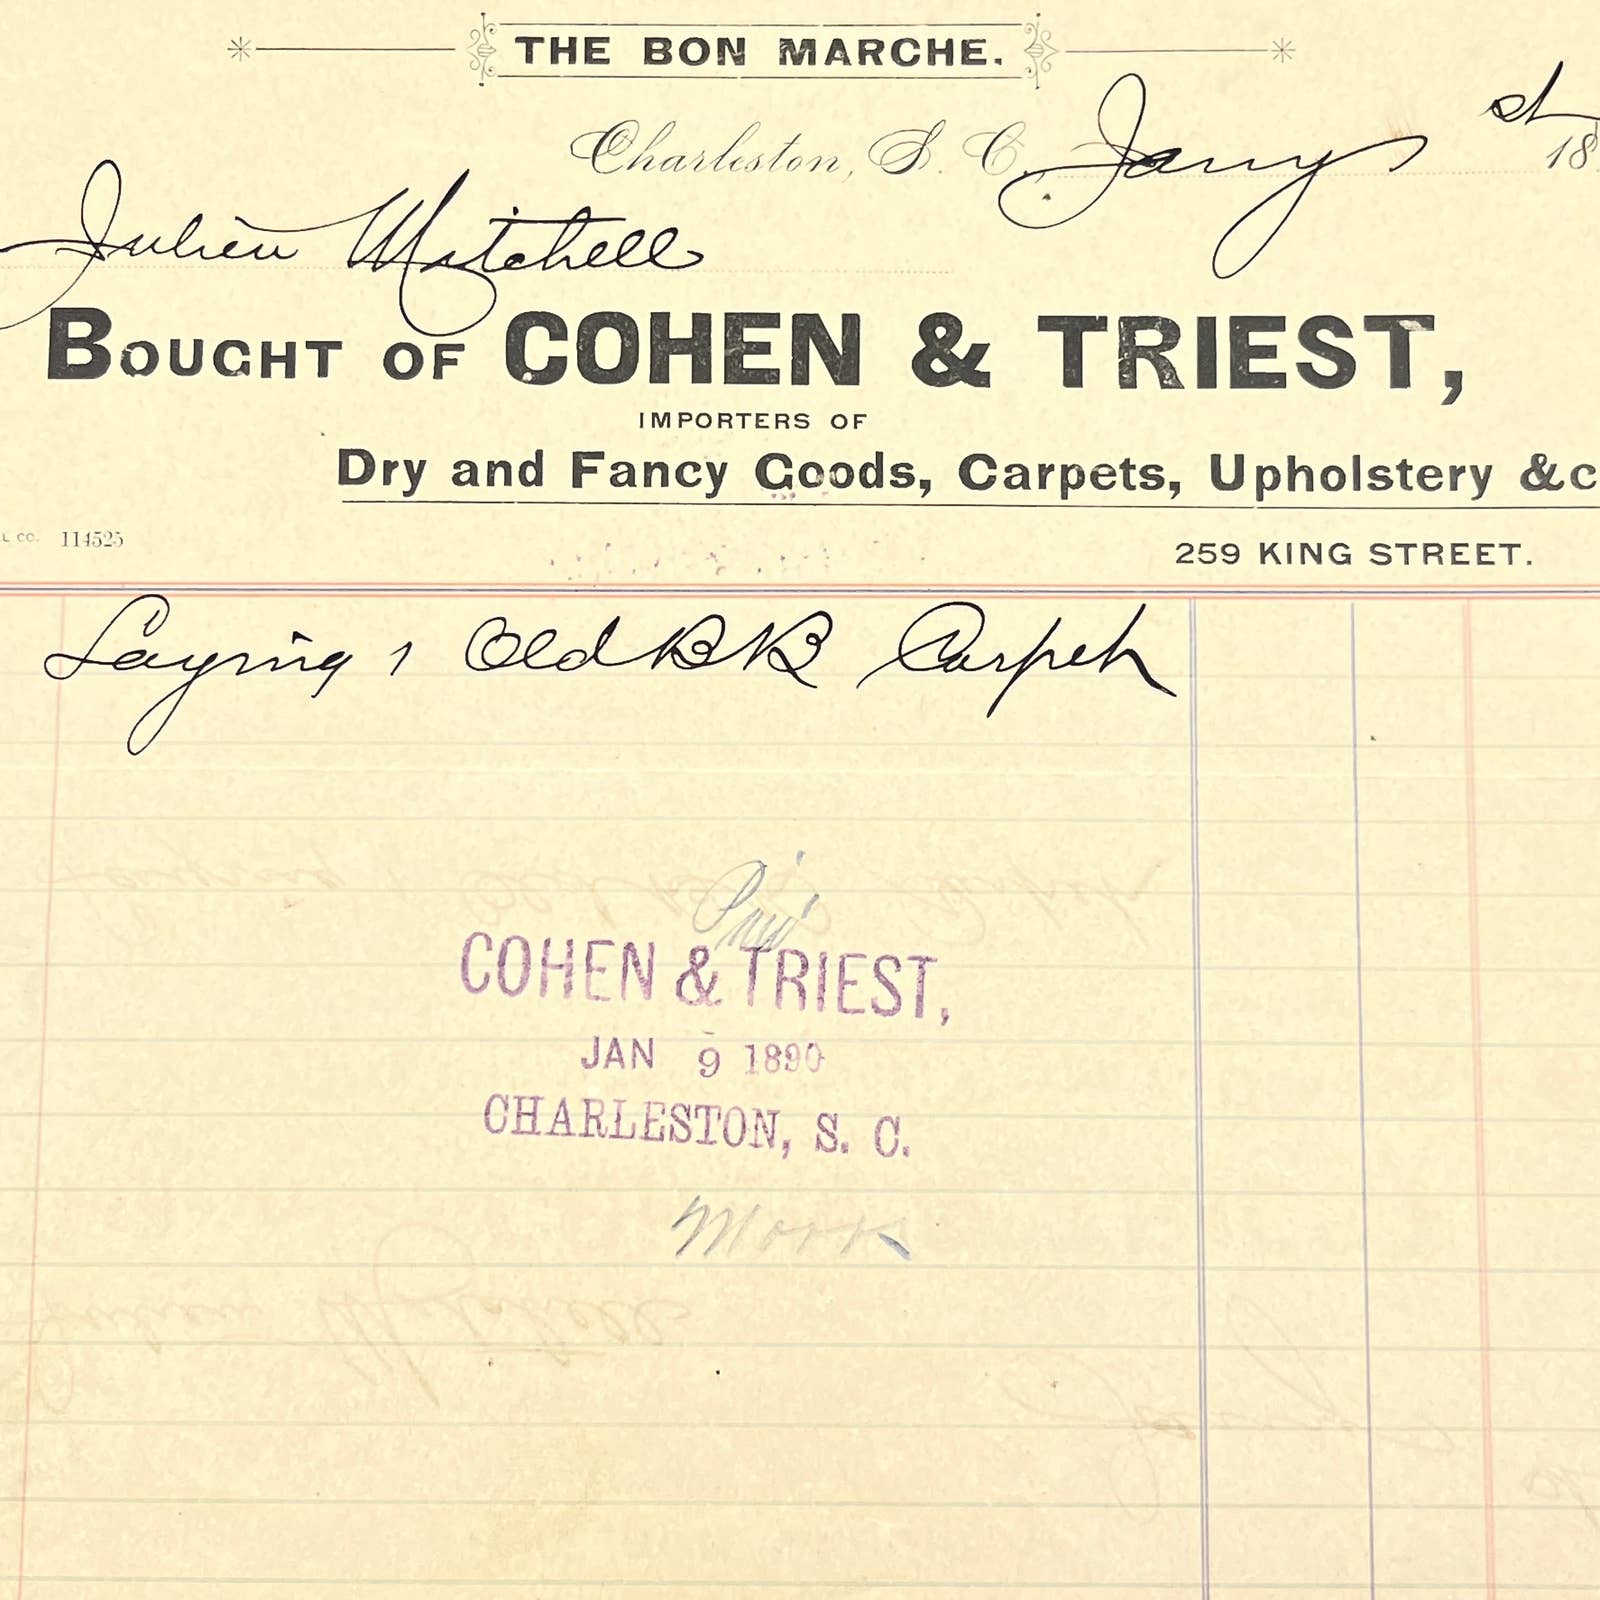 THE BON MARCHE.
Charleston, S. C., Jany st 18
Julien Mitchell
BOUGHT OF COHEN & TRIEST,
IMPORTERS OF
Dry and Fancy Goods, Carpets, Upholstery &c
L CO. 114525
259 KING STREET.
Laying 1 Old BB Carpet
COHEN & TRIEST,
JAN 9 1890
CHARLESTON, S. C.